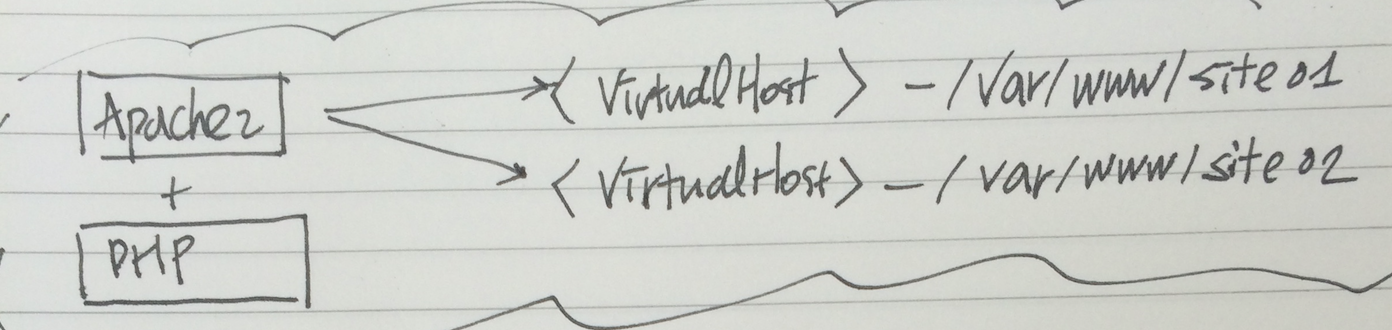 Apache2
<VirtualHost> - /var/www/site01
<VirtualHost> - /var/www/site02
+
PHP